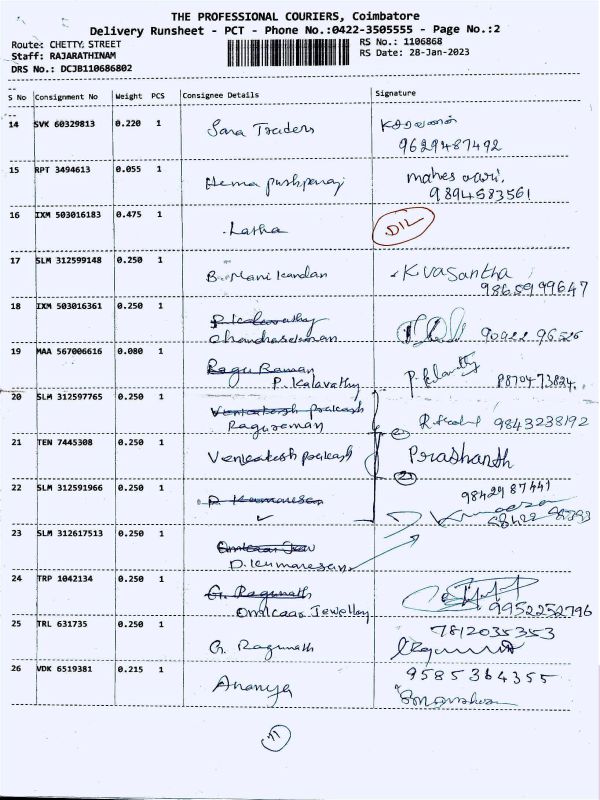 THE PROFESSIONAL COURIERS, Coimbatore
Delivery Runsheet - PCT - Phone No.:0422-3505555 - Page No.:2
Route: CHETTY, STREET
Staff: RAJARATHINAM
DRS No.: DCJB110686802
RS No.: 1106868
RS Date: 28-Jan-2023
S No Consignment No Weight PCS Consignee Details Signature
14 SVK 60329813 0.220 1 Sara Traders
9629487492
15 RPT 3494613 0.055 1 Hema pushparaj Maheswari.
9894583561
16 IXM 503016183 0.475 1 Latha D/L
17 SLM 312599148 0.250 1 B. Mani kandan K. Vasantha
9865999647
18 IXM 503016361 0.250 1 P. Kalavathy
Chandrasekaran 90922 96526
19 MAA 567006616 0.080 1 Ragu Raman
P. Kalavathy P. Kalavathy 88704 73824
20 SLM 312597765 0.250 1 Venkatesh prakash
Raguraman 9843238192
21 TEN 7445308 0.250 1 Venkatesh prakash Prashanth
22 SLM 312591966 0.250 1 D. Kumaresan 9842987441
23 SLM 312617513 0.250 1
D. Kumaresan
24 TRP 1042134 0.250 1 G. Ragunath
Omkaar Jewellery 9952252796
25 TRL 631735 0.250 1 G. Ragunath 7812035353
26 VDK 6519381 0.215 1 Ananya 9585364355